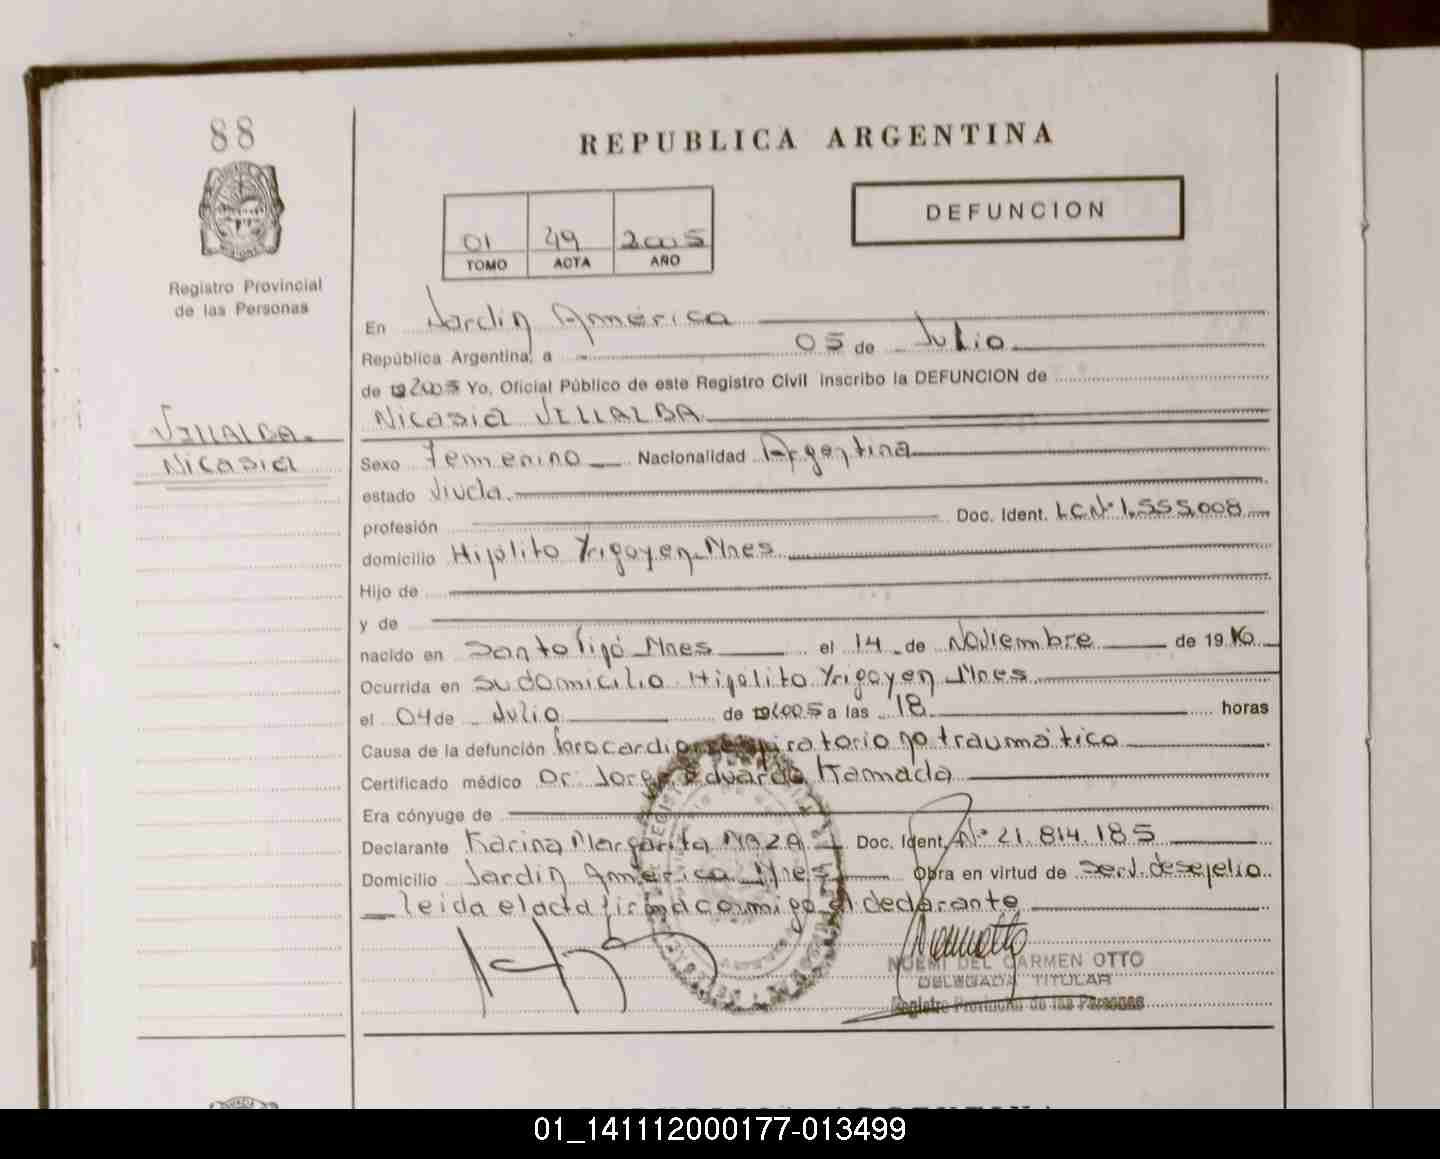 88
REPUBLICA ARGENTINA
DEFUNCION
01 49 2005
TOMO ACTA AÑO
Registro Provincial
de las Personas
En Jardín América
República Argentina, a 05 de Julio
de 2005 Yo, Oficial Público de este Registro Civil inscribo la DEFUNCION de
Nicasia VILLALBA
VILLALBA.
Nicasia
Sexo Femenino Nacionalidad Argentina
estado Viuda
profesión Doc. Ident. L.C.Nº 1.555.008
domicilio Hipólito Yrigoyen Mnes
Hijo de
y de
nacido en Santo Pipó Mnes el 14 de Noviembre de 19
Ocurrida en su domicilio Hipólito Yrigoyen Mnes
el 04 de Julio de 2005 a las 18 horas
Causa de la defunción Parocardiorespiratorio no traumático
Certificado médico Dr. Jorge Eduardo Kamada
Era cónyuge de
Declarante Karina Margarita MAZA Doc. Ident. Nº 21.814.185
Domicilio Jardín América Mnes Obra en virtud de Serv. de sepelio
leida el acta firma conmigo el declarante
NOEMI DEL CARMEN OTTO
DELEGADA TITULAR
Registro Provincial de las Personas
01_141112000177-013499